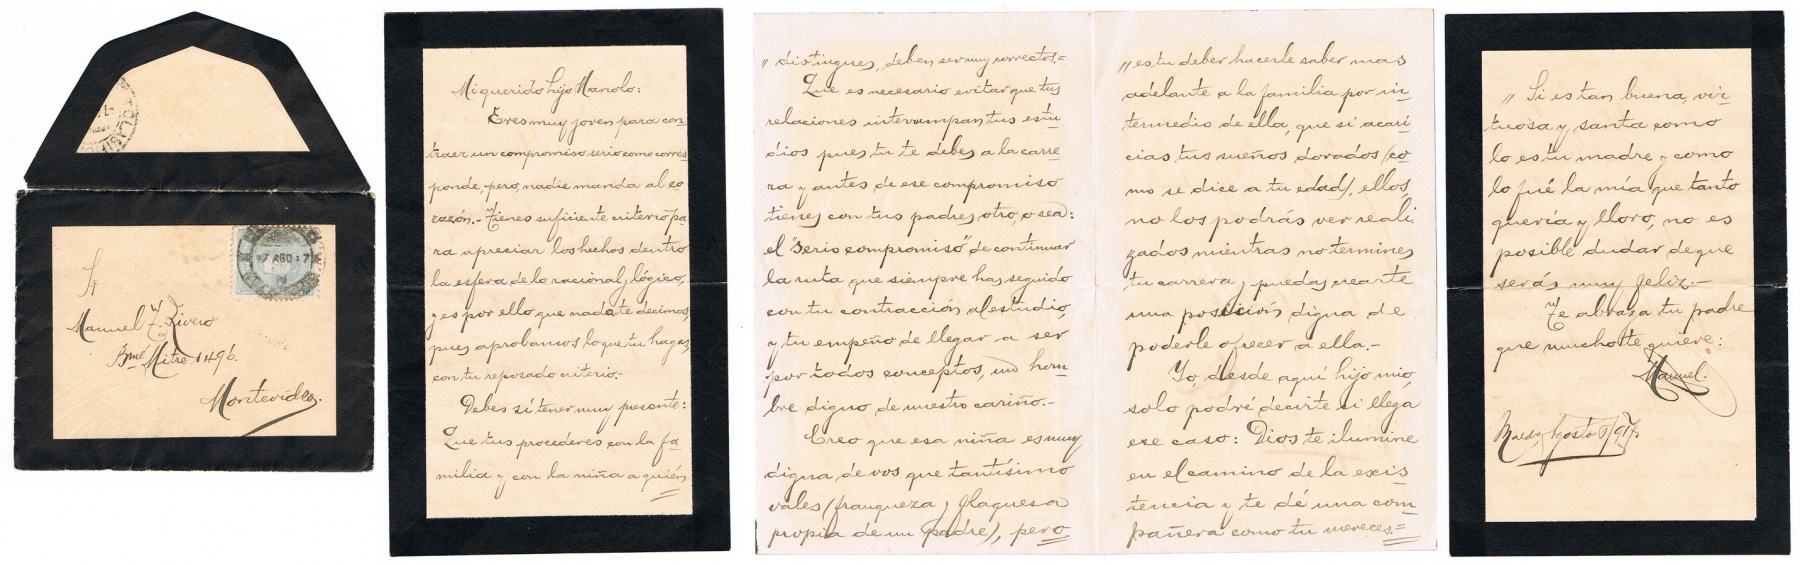 Sr
Manuel F. Rivero
Bmé Mitre 1496.
Montevideo.
7 AGO 17
Mi querido hijo Manolo:
Eres muy joven para con-
traer un compromiso serio como corres
ponde, pero, nadie manda al co-
razón.- Tienes suficiente criterio pa-
ra apreciar los hechos dentro
la esfera de lo racional y lógico,
y es por ello que nada te decimos,
pues aprobamos lo que tu hagas
con tu reposado criterio.-
Debes sí tener muy presente:
Que tus procederes con la fa-
milia y con la niña a quién
" distingues, deben ser muy correctos.=
Que es necesario evitar que tus
relaciones interrumpan tus estu-
dios pues tu te debes a la carre-
ra y antes de ese compromiso
tienes con tus padres otro, o sea:
el "serio compromiso" de continuar
la ruta que siempre has seguido
con tu contracción al estudio,
y tu empeño de llegar a ser
por todos conceptos, un hom-
bre digno de nuestro cariño.-
Creo que esa niña es muy
digna de vos que tantísimo
vales (franqueza y flaquesa
propia de un padre), pero
" es tu deber hacerle saber mas
adelante a la familia por in-
termedio de ella, que si acari-
cias tus sueños dorados (co-
mo se dice a tu edad), ellos,
no los podrás ver reali-
zados mientras no termines
tu carrera y puedas crearte
una posición digna de
poderle ofrecer a ella.-
Yo, desde aquí hijo mio,
solo podré decirte si llega
ese caso: Dios te ilumine
en el camino de la exis
tencia y te dé una com-
pañera como tu mereces.=
" Si es tan buena, vir-
tuosa y santa como
lo es tu madre y como
lo fué la mía que tanto
quería y lloro, no es
posible dudar de que
serás muy feliz.-
Te abraza tu padre
que mucho te quiere:
Manuel.
Maldo, Agosto 6/917.